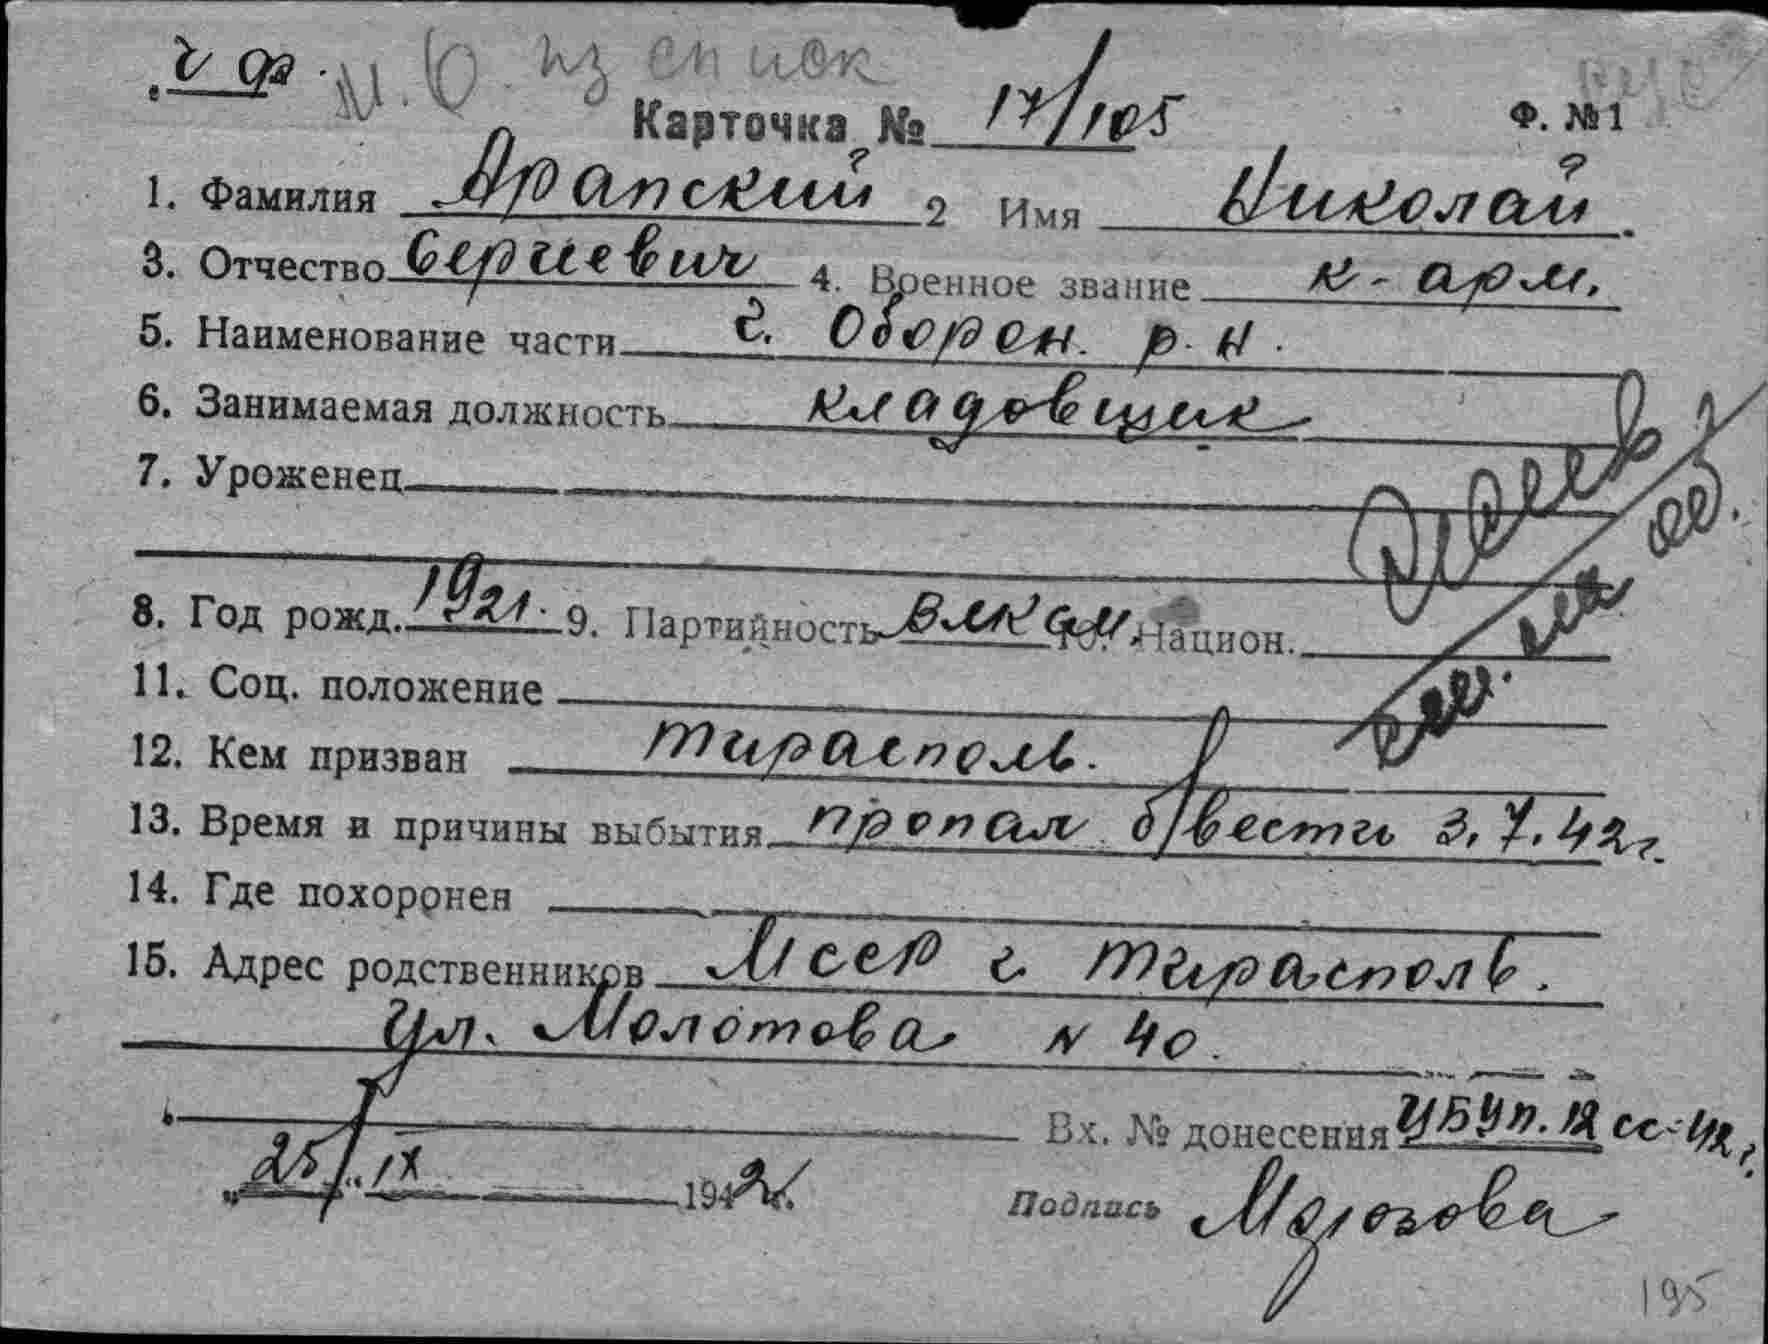 М. О. из список
Карточка № 17/105 Ф. №1
1. Фамилия Арапский 2 Имя Николай
3. Отчество Сергиевич 4. Военное звание к-арм.
5. Наименование части г. Оборон. р. н.
6. Занимаемая должность кладовщик
7. Уроженец
8. Год рожд. 1921. 9. Партийность ВЛКСМ. 10. Национ.
11. Соц. положение
12. Кем призван Тирасполь.
13. Время и причины выбытия пропал б/вести 3.7.42г.
14. Где похоронен
15. Адрес родственников МССР г. Тирасполь.
ул. Молотова N 40.
Вх. № донесения ЦБУп. 12 сс-42г.
"25/" IX 1942г.
Подпись Морозова
195